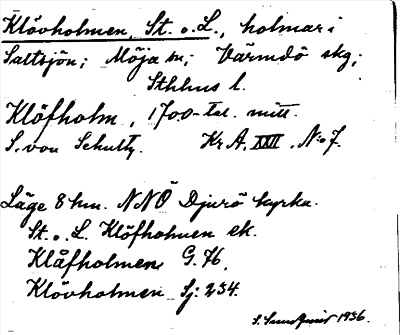 Klövholmen, St. o. L., holmar i
Saltsjön; Möja sn; Värmdö skg;
Sthlms l.
Klöfholm, 1700-tal. mitt.
S. von Schultz. Kr. A. XXII. N:o 7.
Läge 8 km. NNÖ Djurö kyrka.
St. o. L. Klöfholmen ek.
Klåfholmen G. 76.
Klövholmen Sj: 234.
S. 1936.